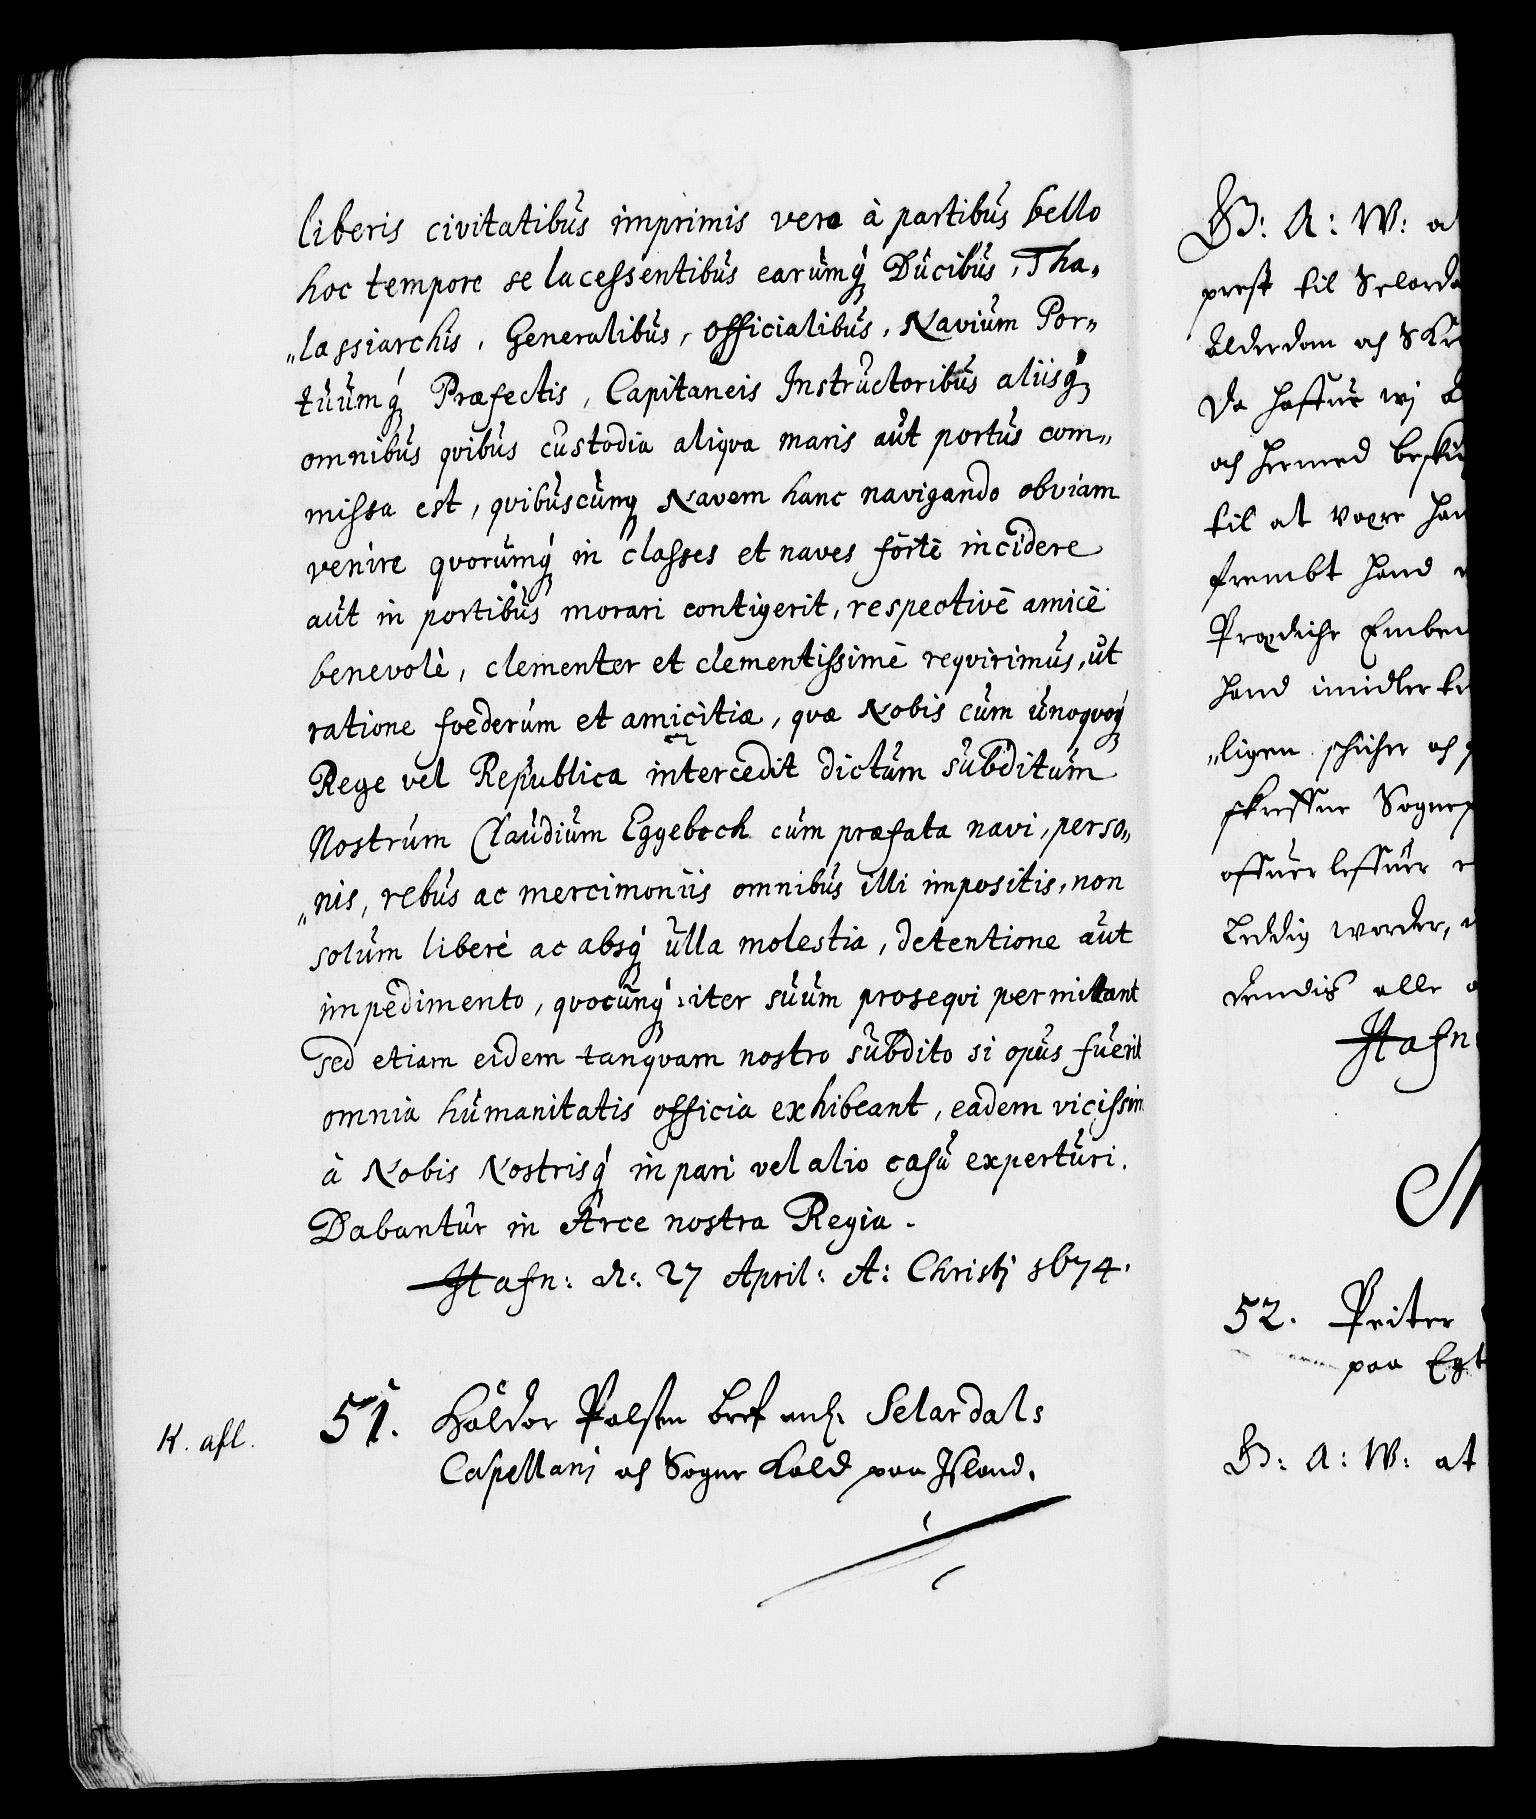 liberis civitatibus imprimis vero à partibus bello
hoc tempore se lacessentibus earumq́ Ducibus, Tha„
„lassiarchis, Generalibus, Officialibus, Navium Por„
tuumq́ Præfectis, Capitaneis Instructoribus aliisq́
omnibus qvibus custodia aliqva maris aut portus com„
missa est, qvibuscunq Navem hanc navigando obviam
venire qvorumq́ in classes et naves fortè incidere
aut in portibus morari contigerit, respectivè amicè
benevolè, clementer et clementissimè reqvirimus, ut
ratione foederum et amicitiæ, qvæ Nobis cum unoqvoq́
Rege vel Republica intercedit dictum subditum
Nostrum Claudium Eggebech cum præfata navi, perso„
„nis, rebus ac mercimoniis omnibus illi impositis, non
solum liberè ac absq́ ulla molestia, detentione aut
impedimento, qvocunq́ iter suum proseqvi permittant
sed etiam eidem tanqvam nostro subdito si opus fuerit
omnia humanitatis officia exhibeant, eadem vicissim
à Nobis Nostrisq́ in pari vel alio casu experturi.
Dabantur in Arce nostra Regia.
Hafn: d: 27 April: A: Christj 1674.
K. afl.
51. Haldor Palsen bref anl. Selardals
Capellanj och Sogne Kald paa Island.
G: A: W: at
prest til Selarda
Alderdom och Skrø
Da haffue wj
och hermed beskick
til at være han
frembt hand
Prædiche Embe
hand imidlerti
„ligen schicher och
skreffne Sognep
offuerleffuer
Leddig worder,
dendis alle
Hafn
52. Peiter
paa Egt
G: A: W: at